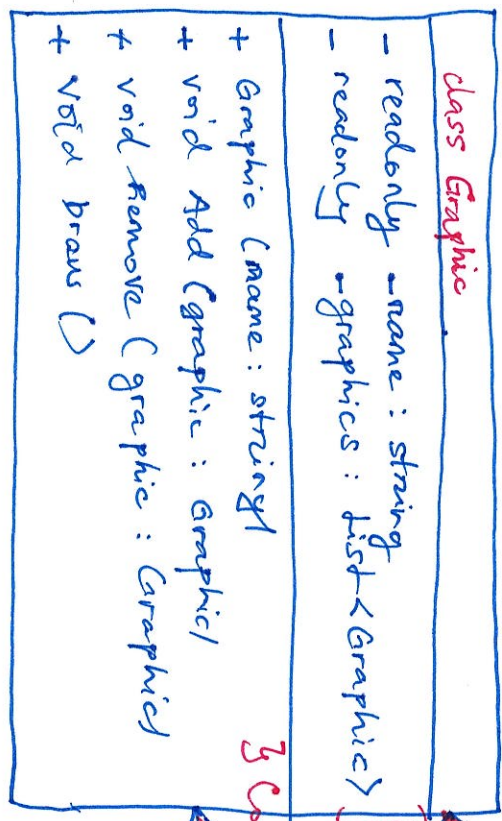 class Graphic
- readonly _name : string
- readonly _graphics : List<Graphic>
+ Graphic (name : string)
+ void Add (graphic : Graphic)
+ void Remove (graphic : Graphic)
+ void Draw ()